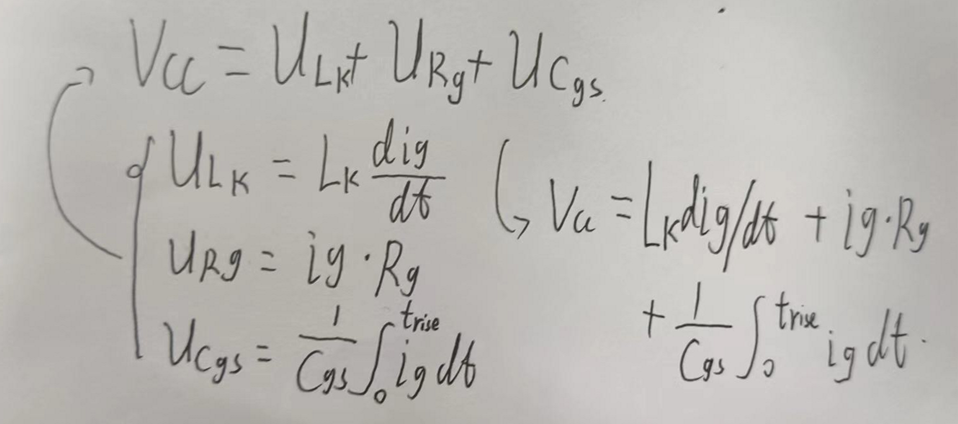 Vcc = U_Lk + U_Rg + U_Cgs
U_LK = L_K dig/dt
U_Rg = ig · Rg
U_Cgs = 1/Cgs ∫_0^trise ig dt
Vcc = L_K dig/dt + ig · Rg
+ 1/Cgs ∫_0^trise ig dt.